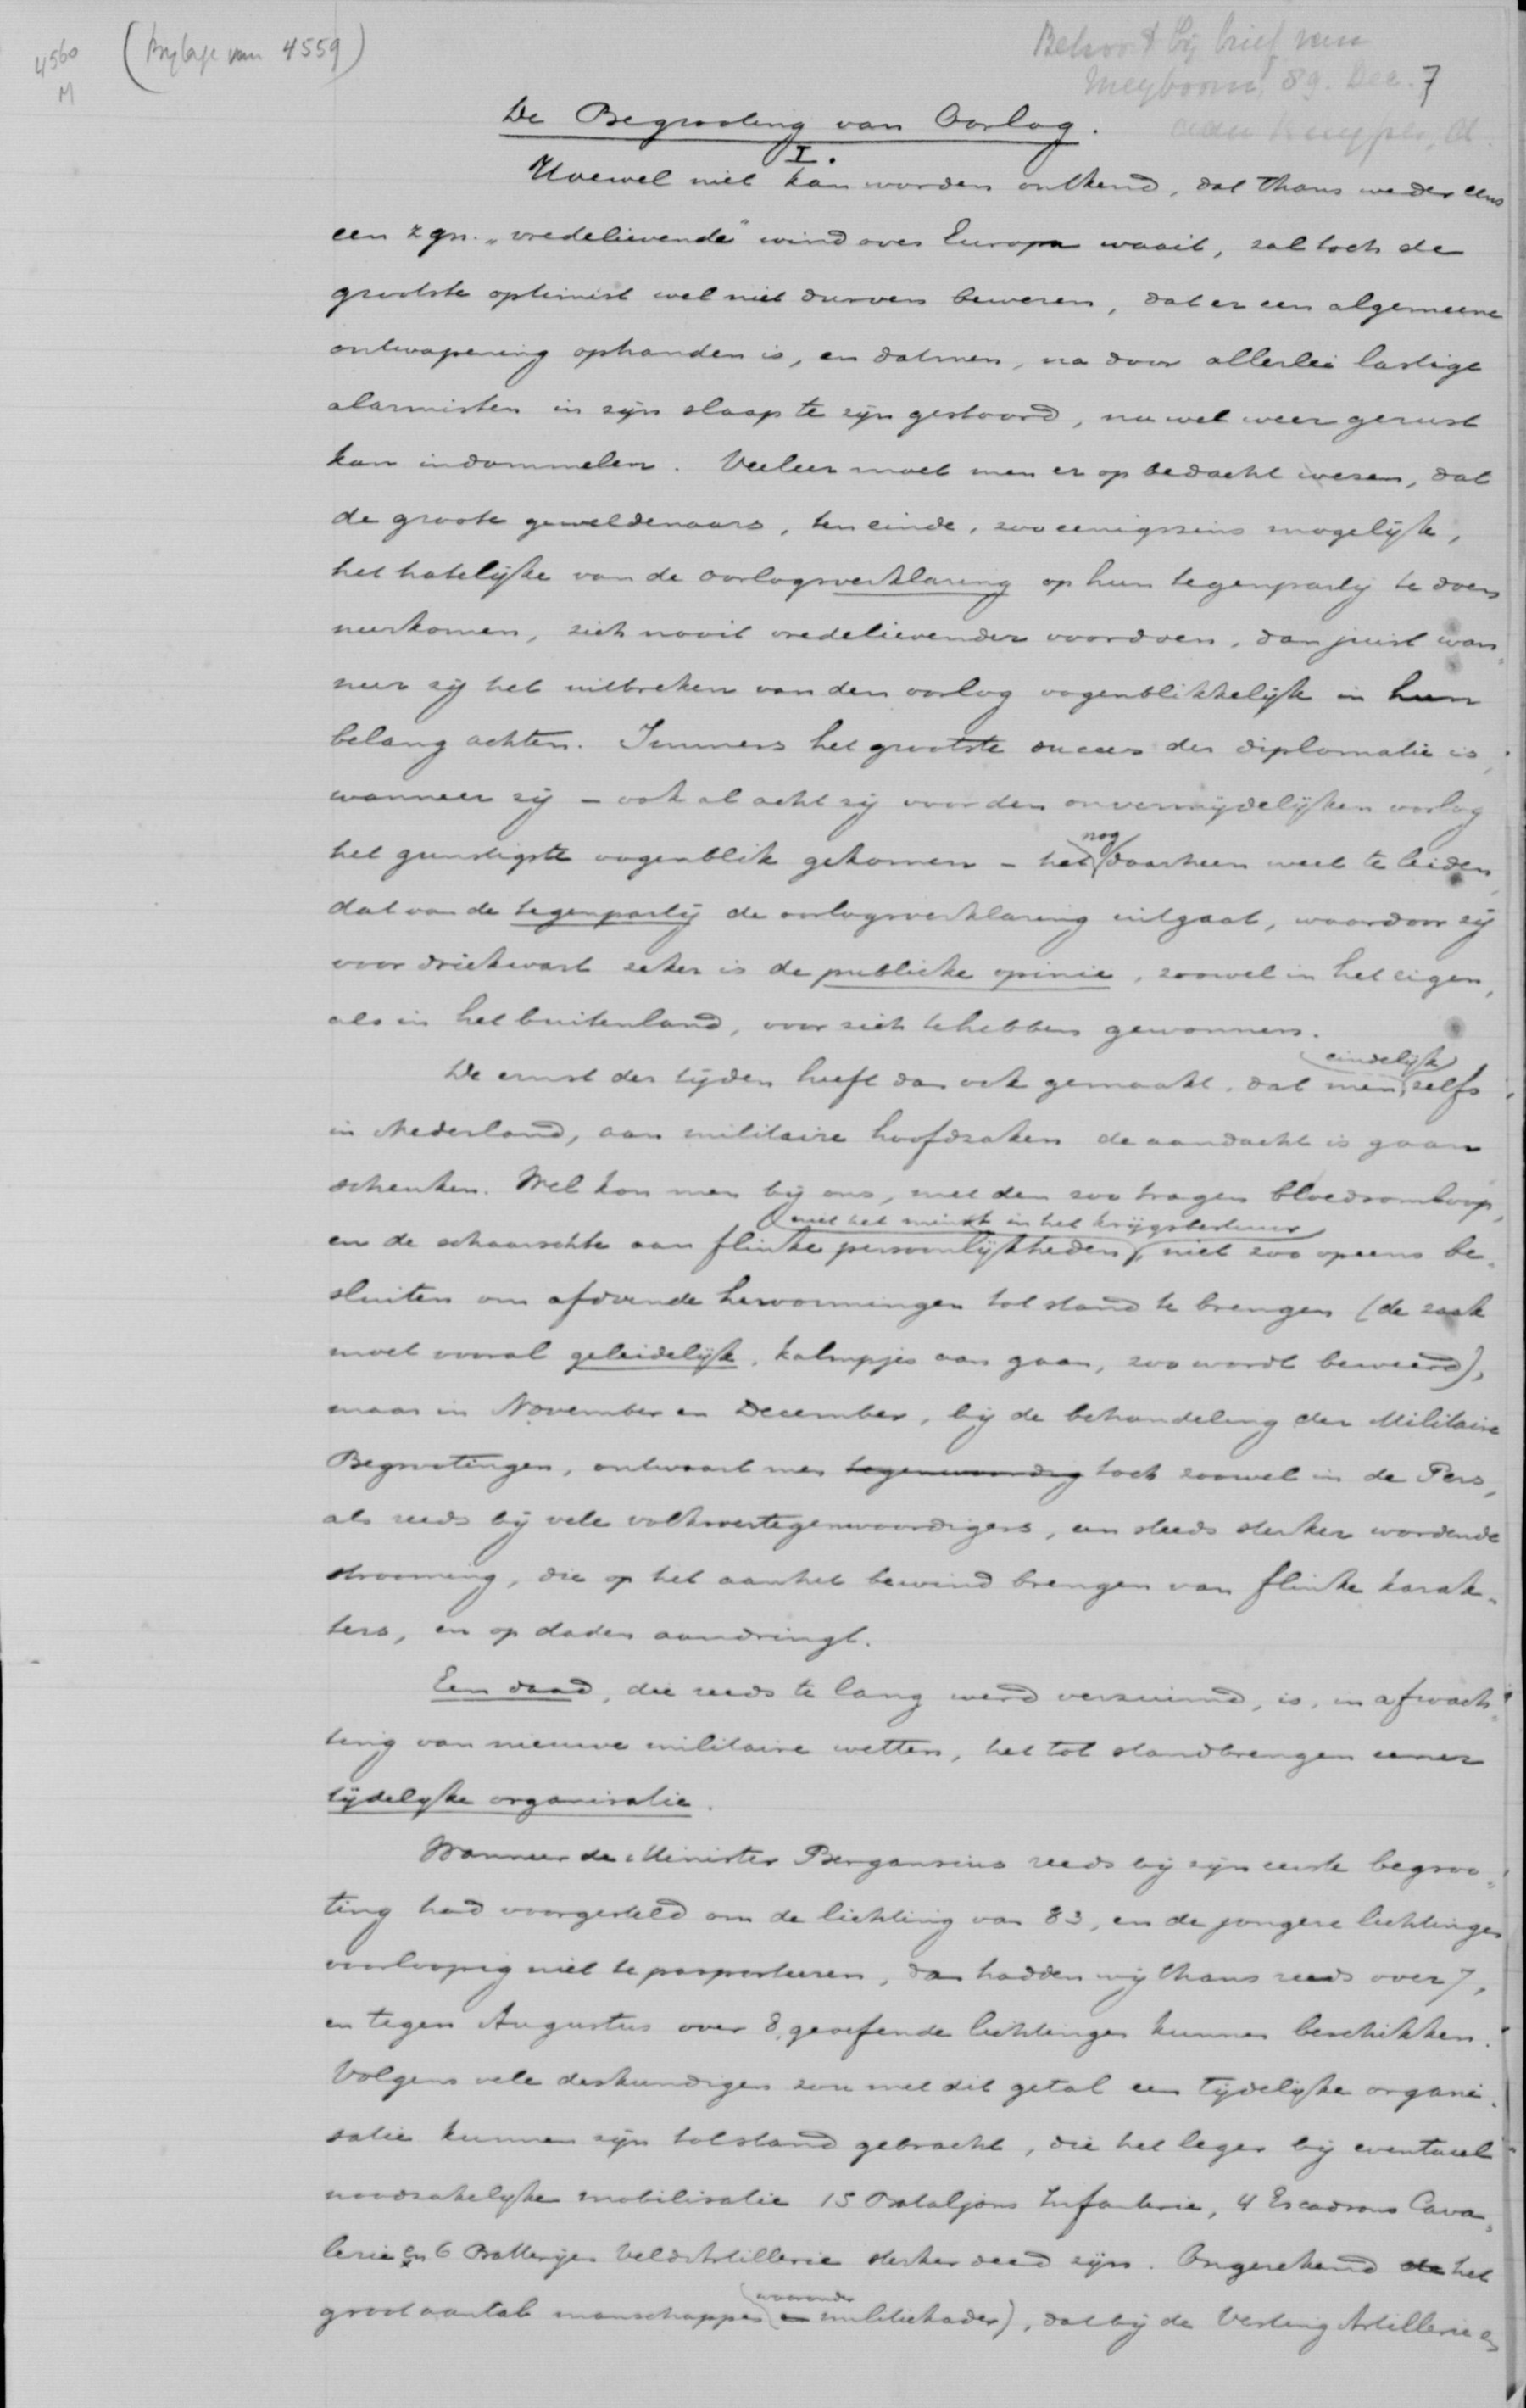 4560
M
(Bijlage van 4559)
Behoort bij brief van
Meyboom, 89. Dec. 7
aan Kuyper, A.
De Begrooting van Oorlog.
I.
Hoewel niet kan worden ontkend, dat thans weder eens
een zgn. „vredelievende" wind over Europa waait, zal toch de
grootste optimist wel niet durven beweren, dat er een algemeene
ontwapening ophanden is, en dat men, na door allerlei lastige
alarmisten in zijn slaap te zijn gestoord, nu wel weer gerust
kan indommelen. Veeleer moet men er op bedacht wezen, dat
de groote geweldenaars, ten einde, zoo eenigszins mogelijk,
het hatelijke van de oorlogsverklaring op hun tegenparty te doen
neerkomen, zich nooit vredelievender voordoen, dan juist wan-
neer zij het uitbreken van den oorlog oogenblikkelijk in hun
belang achten. Immers het grootste succes der diplomatie is,
wanneer zij – ook al acht zij voor den onvermijdelijken oorlog
het gunstigste oogenblik gekomen – het nog daarheen weet te leiden,
dat van de tegenpartij de oorlogsverklaring uitgaat, waardoor zij
voor driekwart zeker is de publieke opinie, zoowel in het eigen,
als in het buitenland, voor zich te hebben gewonnen.
De ernst der tijden heeft dan ook gemaakt, dat men eindelijk, zelfs
in Nederland, aan militaire hoofdzaken de aandacht is gaan
schenken. Wel kon men bij ons, met den zoo tragen bloedsomloop,
en de schaarschte aan flinke persoonlijkheden, niet het minst in het krijgsbestuur, niet zoo opeens be-
sluiten om afdoende hervormingen tot stand te brengen (de zaak
moet vooral geleidelijk, kalmpjes aan gaan, zoo wordt beweerd),
maar in November en December, bij de behandeling der Militaire
Begrootingen, ontwaart men tegenwoordig toch zoowel in de Pers,
als reeds bij vele volksvertegenwoordigers, een steeds sterker wordende
strooming, die op het aan het bewind brengen van flinke karak-
ters, en op daden aandringt.
Een daad, die reeds te lang werd verzuimd, is, in afwach-
ting van nieuwe militaire wetten, het tot standbrengen eener
tijdelijke organisatie.
Wanneer de Minister Bergansius reeds bij zijn eerste begroo-
ting had voorgesteld om de lichting van 83, en de jongere lichtingen
voorloopig niet te pasporteeren, dan hadden wij thans reeds over 7,
en tegen Augustus over 8, geoefende lichtingen kunnen beschikken.
Volgens vele deskundigen zou met dit getal een tijdelijke organi-
satie kunnen zijn totstand gebracht, die het leger bij eventueel
noodzakelijke mobilisatie 15 Bataljons Infanterie, 4 Escadrons Cava-
lerie en 6 Batterijen Veldartillerie sterker deed zijn. Ongerekend de het
groot aantal manschappen (waaronder en militiekader), dat bij de Vesting Artillerie en